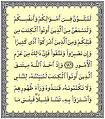 لَتُبْلَوُنَّ فِي أَمْوَالِكُمْ وَأَنفُسِكُمْ
وَلَتَسْمَعُنَّ مِنَ الَّذِينَ أُوتُوا الْكِتَابَ مِن
قَبْلِكُمْ وَمِنَ الَّذِينَ أَشْرَكُوا أَذًى كَثِيرًا
وَإِن تَصْبِرُوا وَتَتَّقُوا فَإِنَّ ذَٰلِكَ مِنْ عَزْمِ
الْأُمُورِ وَإِذْ أَخَذَ اللَّهُ مِيثَاقَ
الَّذِينَ أُوتُوا الْكِتَابَ لَتُبَيِّنُنَّهُ لِلنَّاسِ
وَلَا تَكْتُمُونَهُ فَنَبَذُوهُ وَرَاءَ ظُهُورِهِمْ
وَاشْتَرَوْا بِهِ ثَمَنًا قَلِيلًا فَبِئْسَ مَا